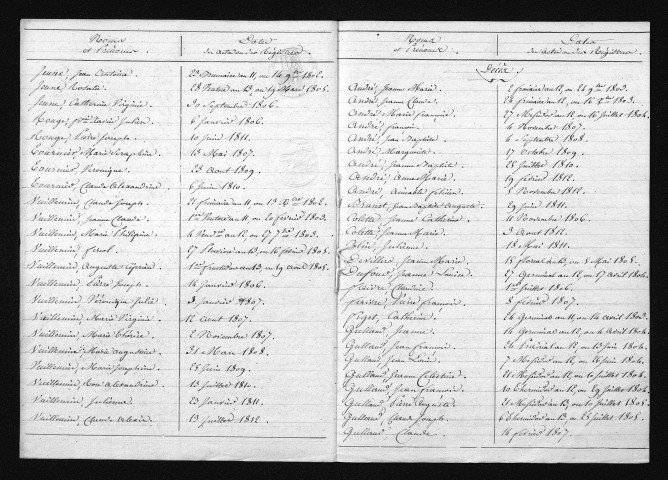 Noms et Prénoms.
Dates des actes ou des Registres.
Jeune, Jean Antoine. 23 Brumaire an 11, ou 14 9bre 1802.
Jeune, Rosalie. 28 Ventose an 13, ou 19 Mars 1805.
Jeune, Catherine Virginie. 30 Septembre 1806.
Rouge, Julien. 6 Janvier 1806.
Rouge, Pierre Joseph. 10 Juin 1811.
Tournier, Marie Séraphine. 13 Mai 1807.
Tournier, Véronique. 23 Aout 1809.
Tournier, Claude Alexandrine. 6 Juin 1810.
Vuillemin, Claude Joseph. 22 frimaire an 11, ou 13 Xbre 1802.
Vuillemin, Jeanne Claude. 1er Ventose an 11, ou 20 février 1803.
Vuillemin, Marie Philipine. 4 Vendre an 12, ou 27 7bre 1803.
Vuillemin, 27 Pluviose an 13, ou 16 février 1805.
Vuillemin, Auguste Cyprien. 1er fructidor an 13, ou 19 aout 1805.
Vuillemin, Pierre Joseph. 14 Janvier 1806.
Vuillemin, Véronique Julie. 3 Janvier 1807.
Vuillemin, Marie Virginie. 12 Aout 1807.
Vuillemin, Marie Thérèse. 2 Novembre 1807.
Vuillemin, Marie Augustine. 31 Mars 1808.
Vuillemin, Marie Josephine. 28 Juin 1809.
Vuillemin, Alexandrine. 13 Juillet 1810.
Vuillemin, Julienne. 23 Janvier 1811.
Vuillemin, Claude 13 Juillet 1812.
Noms et Prénoms.
Dates des actes ou des Registres.
Décès.
André, Jeanne Marie. 2 frimaire an 12, ou 24 9bre 1803.
André, Jeanne Claude. 24 frimaire an 12, ou 16 Xbre 1803.
André, Marie Jeannine. 27 Messidor an 12, ou 16 Juillet 1804.
André, francois. 4 Novembre 1807.
André, Jean Baptiste. 6 Septembre 1808.
André, Marguerite. 17 Octobre 1809.
André, Jeanne Baptiste. 28 Juillet 1810.
André, Anne Marie. 19 février 1812.
André, Aimable Félicien. 2 Novembre 1812.
Brunet, Jean Baptiste Auguste. 29 Juin 1811.
Colette, Jeanne Catherine. 11 Novembre 1806.
Colette, Jeanne Marie. 3 Aout 1812.
Julienne. 18 Mai 1811.
Devillers, Jeanne Marie. 18 floréal an 13, ou 8 Mai 1805.
Dufour, Jeanne Louise. 27 Germinal an 12, ou 17 avril 1804.
Faivre, Claudine. 1er Juillet 1806.
Faivre, Pierre francois. 8 février 1807.
Piget, Catherine. 24 Germinal an 11, ou 14 avril 1803.
Guilland, Jeanne. 14 Germinal an 12, ou 4 avril 1804.
Guilland, Jean francois. 24 Prairial an 12, ou 13 Juin 1804.
Guilland, Jean Louis. 7 Messidor an 12, ou 26 Juin 1804.
Guilland, Jeanne Célestine. 21 Messidor an 12, ou 10 Juillet 1804.
Guilland, Jean francois. 10 thermidor an 12, ou 29 Juillet 1804.
Guilland, Pierre Auguste. 21 Messidor an 13, ou 10 Juillet 1805.
Guilland, Claude Joseph. 6 thermidor an 13, ou 25 Juillet 1805.
Guilland, Claude. 14 février 1807.